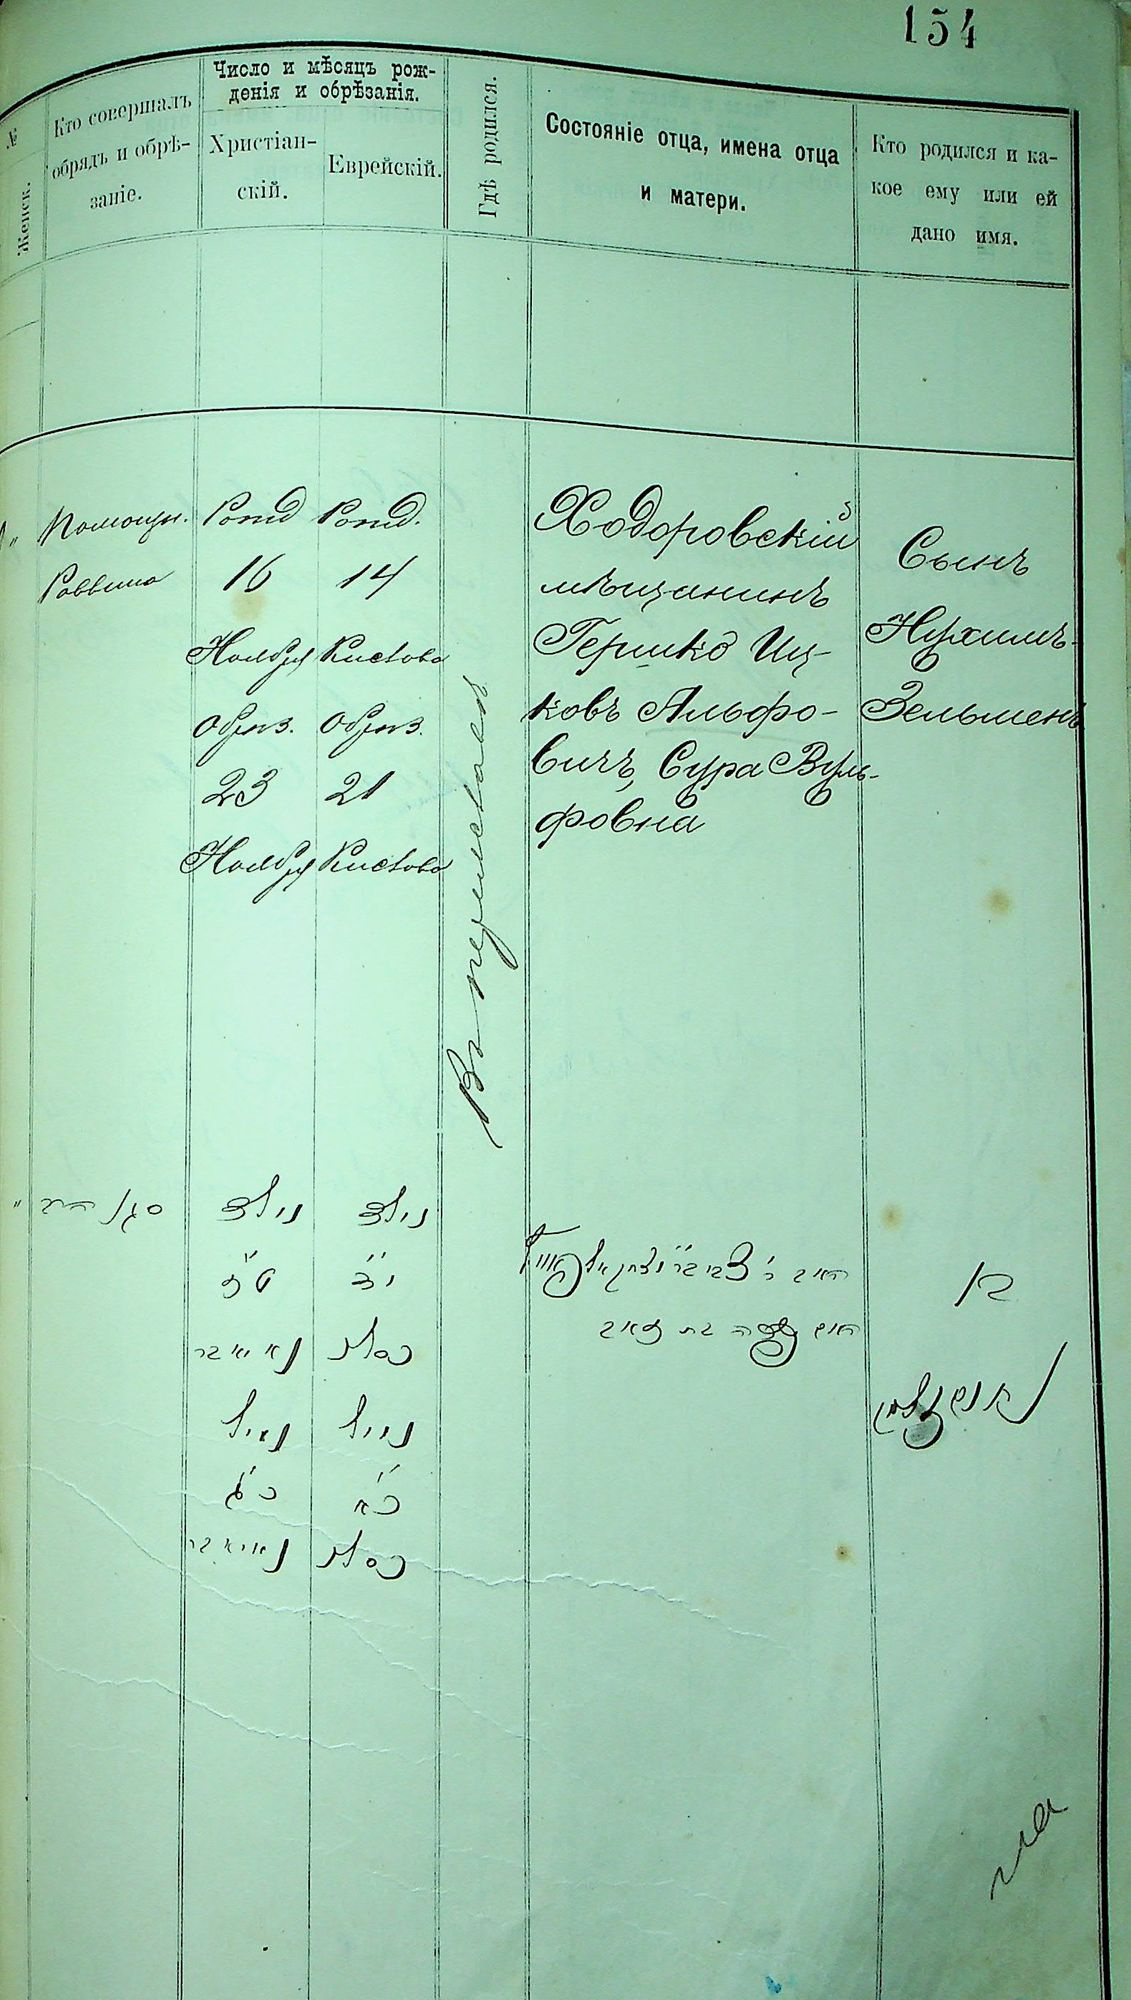 154
№
Женск.
Кто совершалъ
обрядъ и обрѣ-
заніе.
Число и мѣсяцъ рож-
денія и обрѣзанія.
Христіан-
скій.
Еврейскій.
Гдѣ родился.
Состояніе отца, имена отца
и матери.
Кто родился и ка-
кое ему или ей
дано имя.
Помощн.
Раввина
16
Ноября
Обрѣз.
23
Ноября
14
Кислова
Обрѣз.
21
Кислова
Ходоровскій
мѣщанинъ
Гершко Иц-
ковъ Альфо-
вичъ, Сура Вуль-
фовна
Сынъ
Нухимъ-
Зельмень
סגן הרב
נולד
ט״ז
נאיאבר
נימל
כ״ג
נאיאבר
נולד
י״ד
כסלו
נימל
כ״א
כסלו
בן